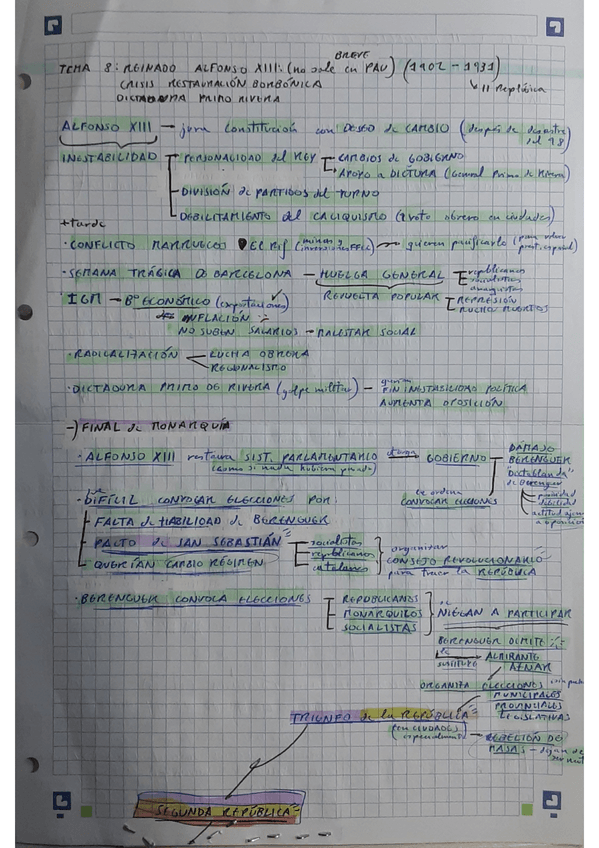 BREVE
TEMA 8: REINADO ALFONSO XIII: (no sale en PAU) (1902 - 1931)
CRISIS RESTAURACIÓN BORBÓNICA ↳ II República
DICTADURA PRIMO RIVERA
ALFONSO XIII → jura Constitución con DESEO de CAMBIO (después de desastre del 98)
INESTABILIDAD PERSONALIDAD del REY CAMBIOS de GOBIERNO
APOYO a DICTURA (General Primo de Rivera)
DIVISIÓN de PARTIDOS del TURNO
DEBILITAMIENTO del CACIQUISMO (voto obrero en ciudades)
+ tarde
· CONFLICTO MARRUECOS EL RIF (minas y inversiones FFCC) quieren pacificarlo
· SEMANA TRÁGICA D BARCELONA — HUELGA GENERAL republicanos
socialistas
anarquistas
REVUELTA POPULAR REPRESIÓN
MUCHOS MUERTOS
IGM — Bº ECONÓMICO (exportaciones)
INFLACIÓN
NO SUBEN SALARIOS → MALESTAR SOCIAL
· RADICALIZACIÓN LUCHA OBRERA
REGIONALISMO
· DICTADURA PRIMO DE RIVERA (golpe militar) — quería
FIN INESTABILIDAD POLÍTICA
AUMENTA OPOSICIÓN
→) FINAL de MONARQUÍA
· ALFONSO XIII restaura SIST. PARLAMENTARIO otorga GOBIERNO DÁMASO
BERENGUER
(como si nada hubiera pasado) "Dictablanda"
de Berenguer
debilidad
le ordena
CONVOCAR ELECCIONES
· DIFÍCIL CONVOCAR ELECCIONES POR:
FALTA de HABILIDAD de BERENGUER
PACTO de SAN SEBASTIÁN socialistas
republicanos
catalanes
QUERÍAN CAMBIO RÉGIMEN
organizar
CONSEJO REVOLUCIONARIO
para traer la REPÚBLICA
· BERENGUER CONVOCA ELECCIONES REPUBLICANOS
MONARQUICOS
SOCIALISTAS
se
NIEGAN A PARTICIPAR
BERENGUER DIMITE
le
sustituye ALMIRANTE
AZNAR
ORGANIZA ELECCIONES
MUNICIPALES
PROVINCIALES
LEGISLATIVAS
TRIUNFO de la REPÚBLICA
(en CIUDADES
especialmente) → REBELIÓN DE
MASAS
SEGUNDA REPÚBLICA